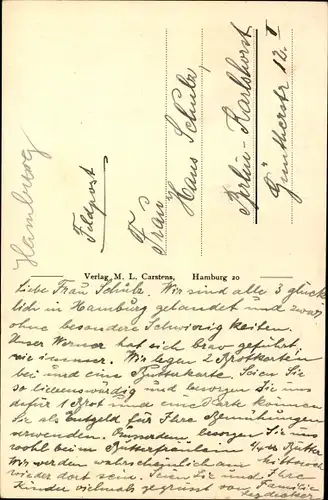 Hamburg
Feldpost
Frau
Hans Schulz,
Berlin-Karlshorst
Güntherstr 12 I
Verlag M. L. Carstens, Hamburg 20
Liebe Frau Schulz. Wir sind alle 3 glück
lich in Hamburg gelandet und zwar
ohne besondere Schwierigkeiten.
Unser Werner hat sich brav geführt,
wie immer. Wir legen 2 Brotkarten
bei und eine Butterkarte. Seien Sie
so liebenswürdig und besorgen Sie uns
dafür 1 Brot und eine können
Sie als Entgeld für Ihre Bemühungen
verwenden. Ausserdem besorgen Sie uns
wohl beim Butterfräulein 1/4 Butter
Wir werden wahrscheinlich am Mittwoch
wieder dort sein. Seien Sie und Ihre
Kinder vielmals gegrüsst von Familie